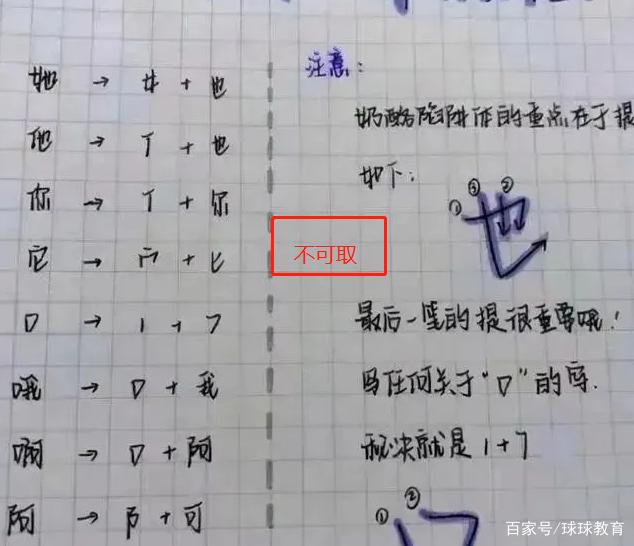 她 → 女 + 也
他 → 亻 + 也
你 → 亻 + 尔
它 → 宀 + 匕
口 → 1 + 7
哦 → 口 + 我
啊 → 口 + 阿
阿 → 阝 + 可
注意:
奶酪陷阱体的重点在于提
如下:
① ③ ②
也
不可取
最后一笔的提很重要哦!
写任何关于“口”的字.
秘诀就是1+7
① ②
百家号/球球教育